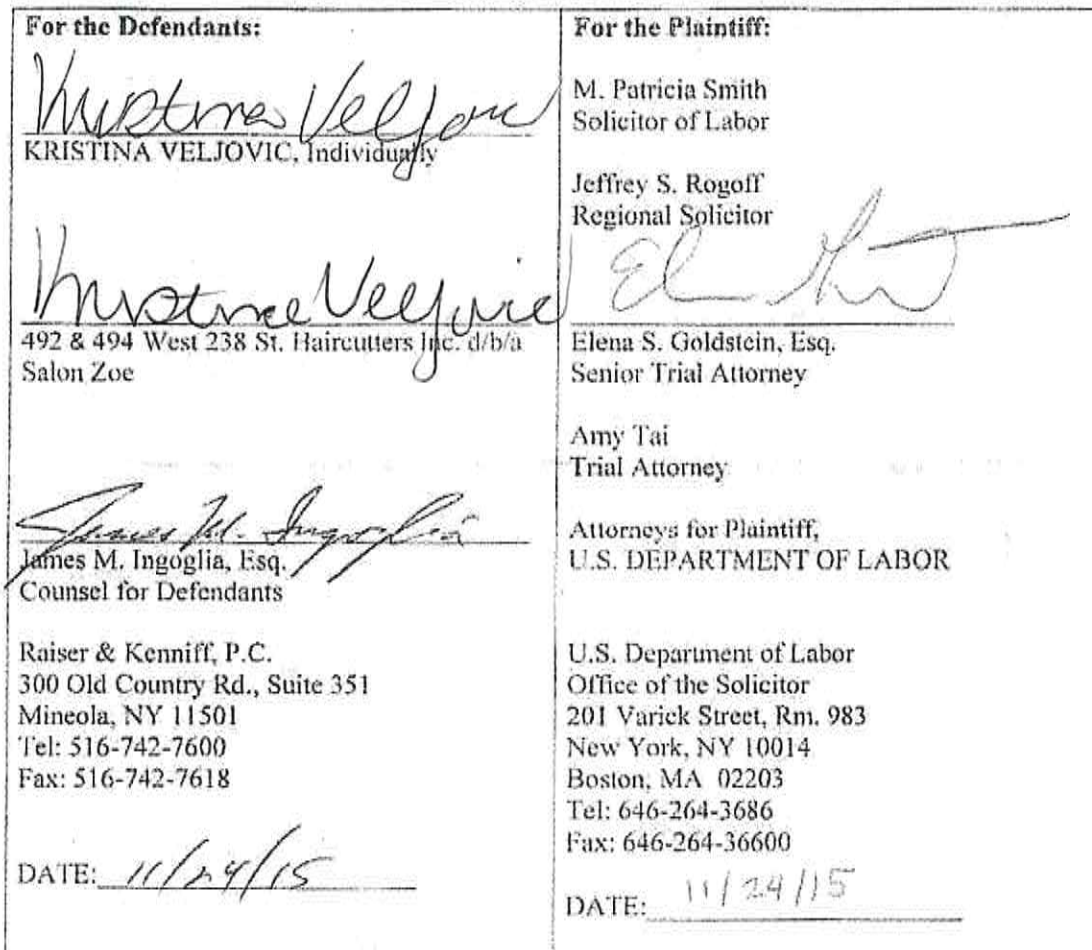 For the Defendants:
Kristina Veljovic
KRISTINA VELJOVIC, Individually
Kristina Veljovic
492 & 494 West 238 St. Haircutters Inc. d/b/a
Salon Zoe
James M. Ingoglia
James M. Ingoglia, Esq.
Counsel for Defendants
Raiser & Kenniff, P.C.
300 Old Country Rd., Suite 351
Mineola, NY 11501
Tel: 516-742-7600
Fax: 516-742-7618
DATE: 11/24/15
For the Plaintiff:
M. Patricia Smith
Solicitor of Labor
Jeffrey S. Rogoff
Regional Solicitor
Elena S. Goldstein, Esq.
Senior Trial Attorney
Amy Tai
Trial Attorney
Attorneys for Plaintiff,
U.S. DEPARTMENT OF LABOR
U.S. Department of Labor
Office of the Solicitor
201 Varick Street, Rm. 983
New York, NY 10014
Boston, MA 02203
Tel: 646-264-3686
Fax: 646-264-36600
DATE: 11/24/15